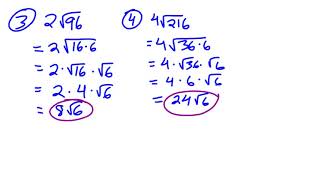 ③ 2√96
= 2√16·6
= 2·√16·√6
= 2·4·√6
= 8√6
④ 4√216
= 4√36·6
= 4·√36·√6
= 4·6·√6
= 24√6